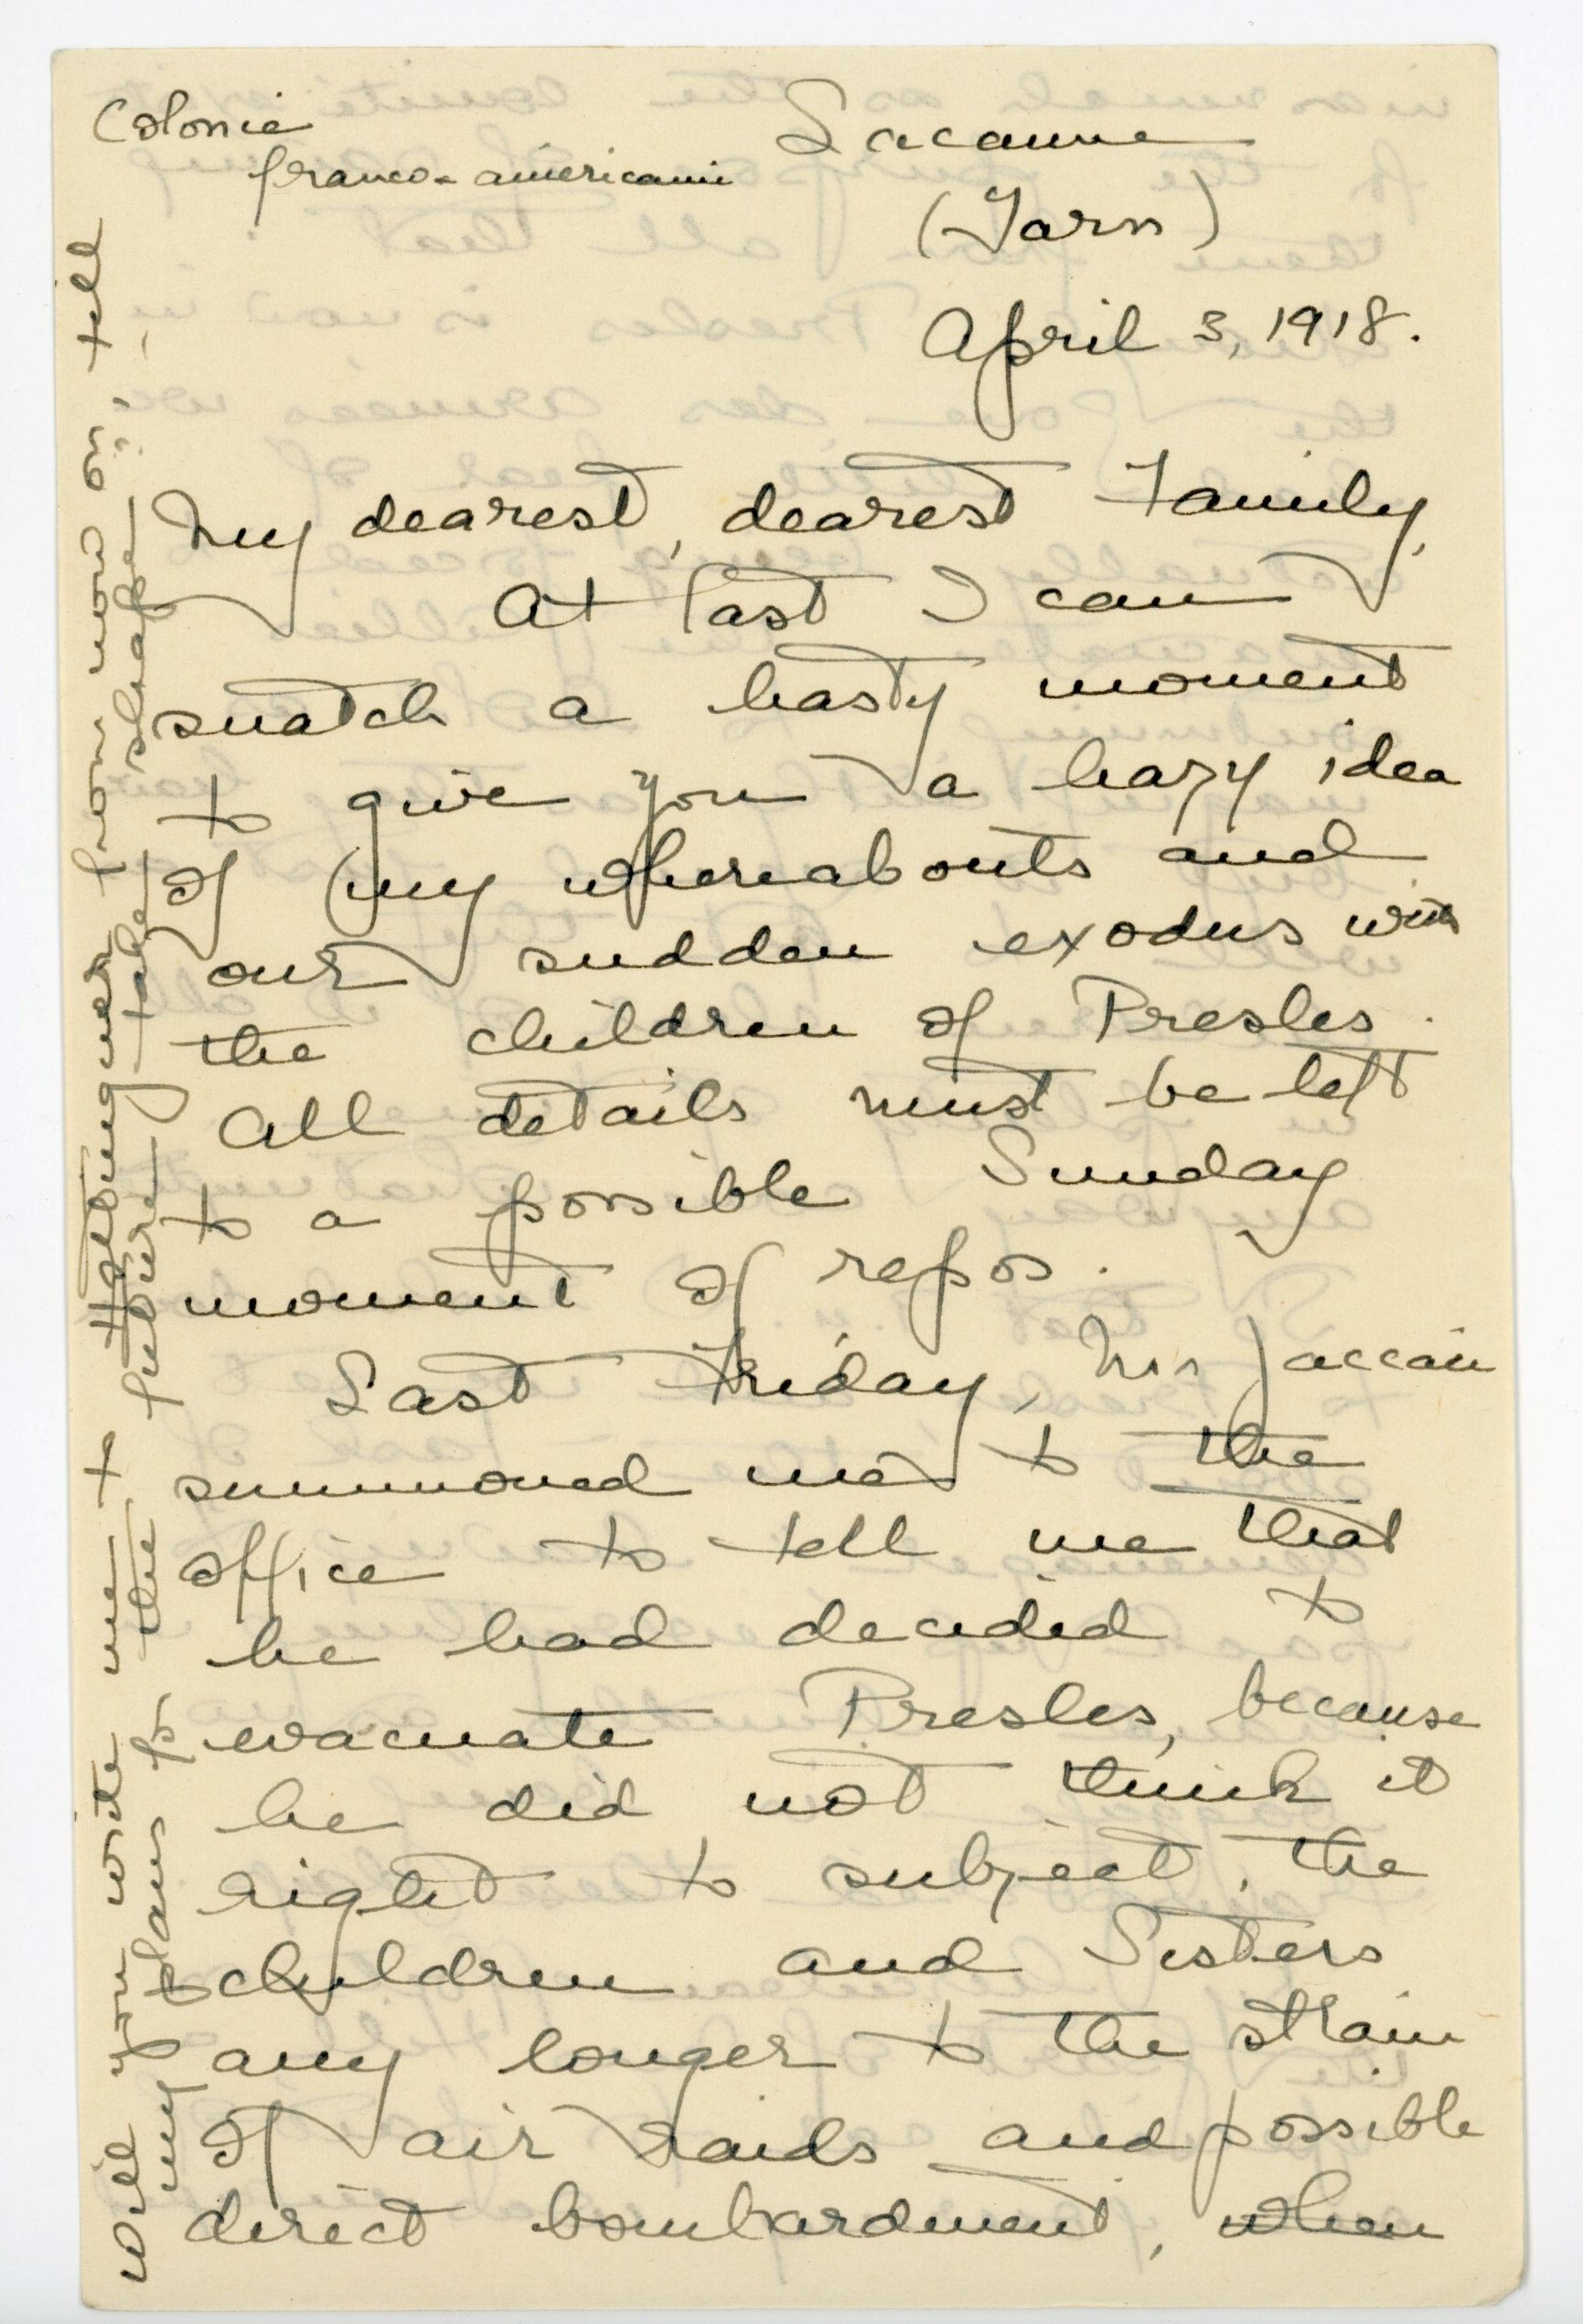 Colonie
franco-américaine
Lacaune
(Tarn)
April 3, 1918.
My dearest, dearest Family,
At last I can
snatch a hasty moment
to give you a hazy idea
of my whereabouts and
our sudden exodus with
the children of Presles.
All details must be left
to a possible Sunday
moment of repos.
Last Friday, Mr Jaccaci
summoned me to the
office to tell me that
he had decided to
evacuate Presles, because
he did not think it
right to subject the
children and Sisters
any longer to the strain
of air raids and possible
direct bombardment, when
Will you write me to Hottinguer from now on, till
my plans for the future take shape